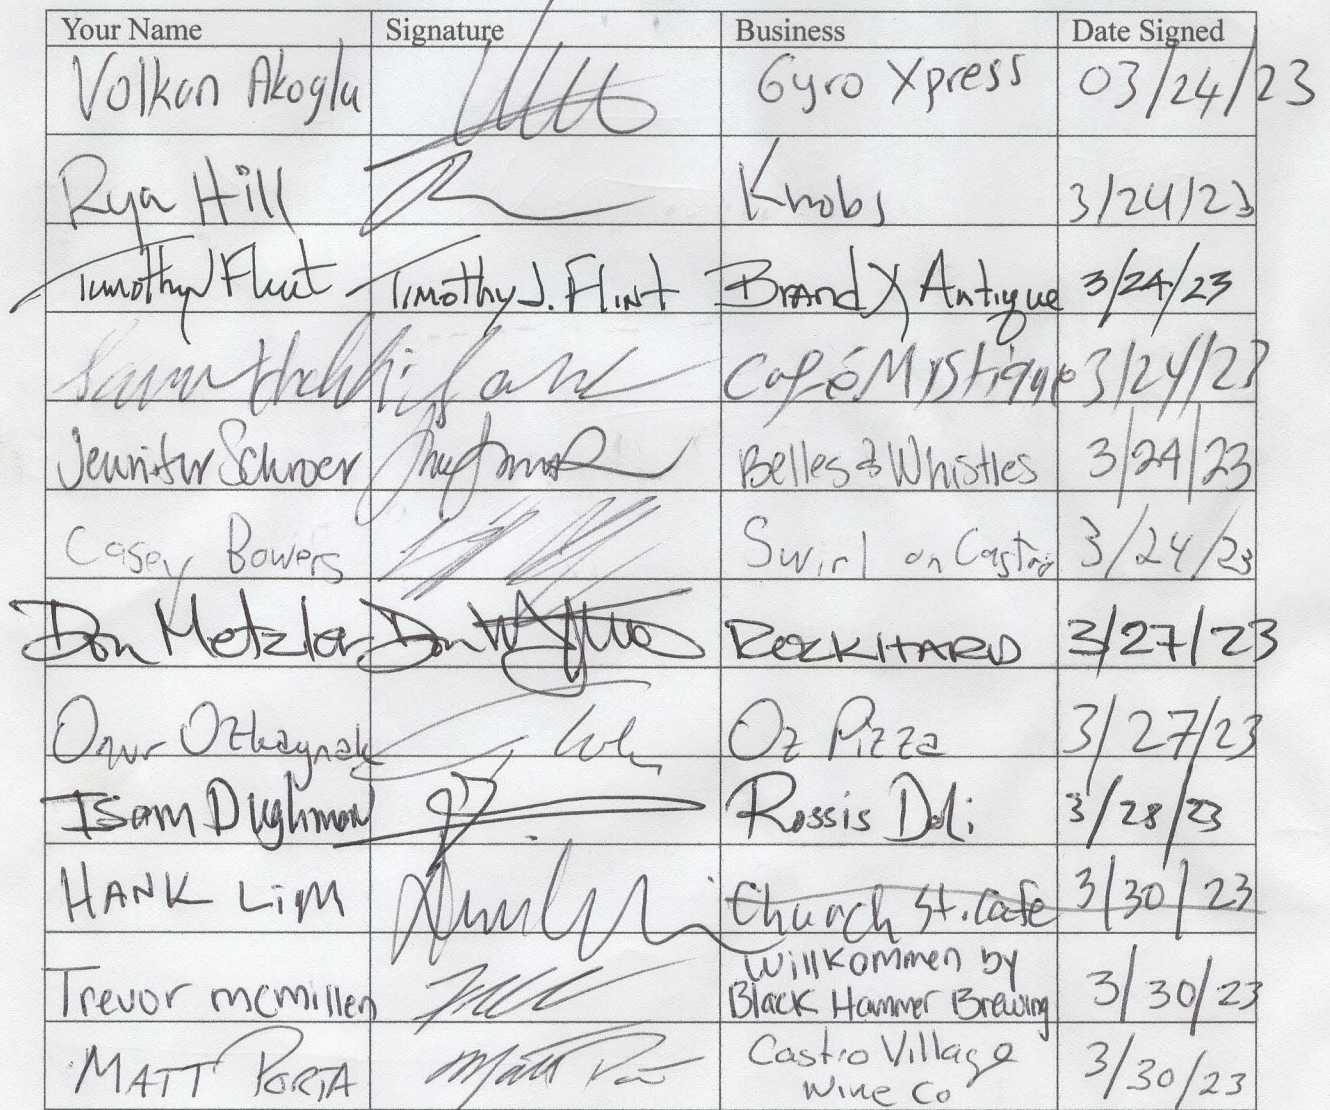 Your Name Signature Business Date Signed
Volkan Akoglu Gyro Xpress 03/24/23
Rya Hill Knobs 3/24/23
Timothy J Flint Timothy J. Flint Brand X Antique 3/24/23
Café Mystique 3/24/23
Jennifer Schroer Belles & Whistles 3/24/23
Casey Bowers Swirl on Castro 3/24/23
Don Metzler Don ROCKHARD 3/27/23
Onur Ozkaynak Oz Pizza 3/27/23
Isam Dughman Rossis Deli 3/28/23
HANK Lim Church St. Cafe 3/30/23
Trevor mcmillen Willkommen by
Black Hammer Brewing 3/30/23
MATT PORTA Matt Castro Village
Wine Co 3/30/23